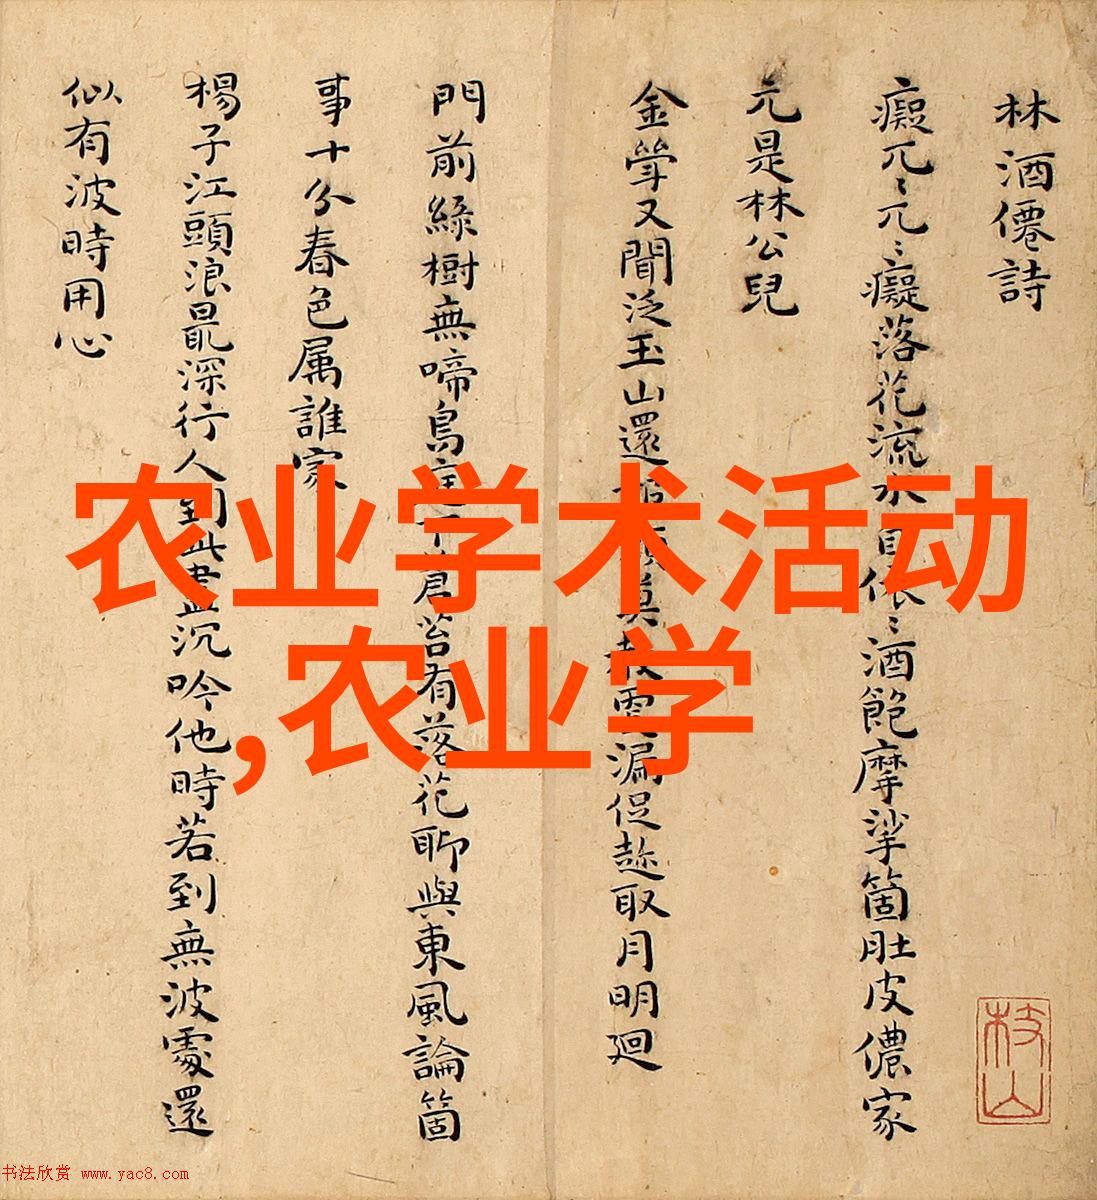 林酒僊詩
癡兀〻兀〻癡落花流水自依〻酒飽摩挲箇肚皮儂家
元是林公兒
金斝又聞泛玉山還 莫教雲漏促趂取月明迴
門前綠樹無啼鳥庭下蒼苔有落花聊與東風論箇
事十分春色属誰家
楊子江頭浪最深行人到此盡沉吟他時若到無波處還
似有波時用心
枝山
农业学术活动
,农业学
书法欣赏 www.yac8.com